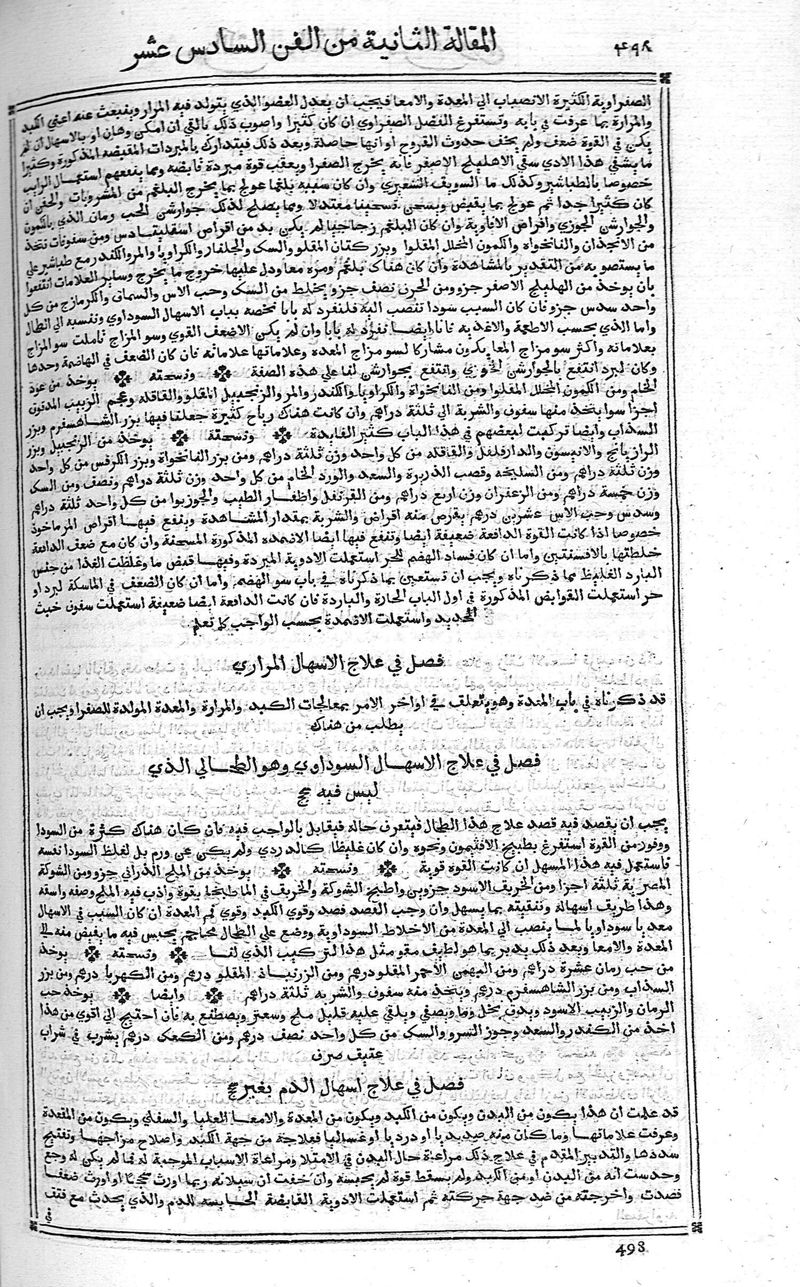 ٤٩٨
المقالة الثانية من الفن السادس عشر
الصفراوية الكثيرة الانصباب الي المعدة والامعا فيجب ان يعدل العضو الذي يتولد فيه المرار وينبعث عنه اعني الكبد
والمرارة بما عرفت في بابه وتستفرغ الفضل الصفراوي ان كان كثيرا واصوب ذلك بالقي ان امكن وهان او بالاسهال ان لم
يكن في القوة ضعف ولم يخف حدوث القروح او انها حاصلة وبعد ذلك فيتدارك بالمبردات المقبضه المذكورة وكثيرا
ما يشفي هذا الاذي سقي الاهليلج الاصفر فانه يخرج الصفرا ويعقب قوة مبردة قابضه ومما ينفعهم استعمال الرايب
خصوصا بالطباشير وكذلك ما السويق الشعيري وان كان سببه بلغما عولج بما يخرج البلغم من المشروبات والحقن ان
كان كثيرا جدا ثم عولج بما يقبض ويسخن تسخينا معتدلا ومما يصلح لذلك جوارشن الحب رمان الذي بالكمون
والجوارشن الجوزي واقراص الافاوية وان كان البلغم زجاجيا لم يكن بد من اقراص اسقليبادس ومن سفوفات تتخذ
من الانجذان والنانخواه والكمون المخلل المقلوا وبزر كتان المقلو والسك والجلنار والكراويا والمر والكندر مع طباشير علي
ما يستصوبه من التقدير بالمشاهدة وان كان هناك بلغم ومرة معا ودل عليها خروج ما يخرج وساير العلامات انتفعوا
بان يوخذ من الهليلج الاصفر جزو ومن الحرف نصف جزو يخلط من السك وحب الاس والسماق والكرمازج من كل
واحد سدس جزو فان كان السبب سودا تنصب اليه فلنفرد له بابا نخصه بباب الاسهال السوداوي ونفسبه الي الطحال
واما الذي بحسب الاطعمة والاغذيه فانا ايضا نفرد له بابا وان لم يكن الا ضعف القوي وسو المزاج تاملت سو المزاج
بعلاماته واكثر سو مزاج المعا يكون مشاركا لسو مزاج المعده وعلاماتها علاماته فان كان الضعف في الهاضمة وحدها
وكان لبرد انتفع بالجوارشن الخوزي وانتفع بجوارشن لفا علي هذه الصفة ونسخته يوخذ من عود
الخام ومن الكمون المخلل المقلوا ومن النانخواة والكراويا والكندر والمر والزنجبيل المقلو والقاقله وعجم الزبيب المدقوق
اجزا سوا يتخذ منها سفوف والشربة الي ثلثة دراهم وان كانت هناك رياح كثيرة جعلنا فيها بزر الشاهسفرم وبزر
السذاب وايضا تركيب لبعضهم في هذا الباب كثير الفايدة ونسخته يوخذ من الزنجبيل وبزر
الرازيانج والانيسون والدارفلفل والقاقله من كل واحد وزن ثلثة دراهم ومن بزر النانخواة وبزر الكرفس من كل واحد
وزن ثلثة دراهم ومن السليخه وقصب الذريرة والسعد والورد الخام من كل واحد وزن ثلثة دراهم ونصف ومن السك
وزن خمسة دراهم ومن الزعفران وزن اربع دراهم ومن القرنفل واظفار الطيب والجوزبوا من كل واحد ثلثة دراهم
وسدس وحب الاس عشرين درهم يقرص منه اقراص والشربة بمقدار المشاهدة وينفع فيها اقراص المرماخوذ
خصوصا اذا كانت القوة الدافعة ضعيفة ايضا وتنفع فيها ايضا الاضمده المذكورة المسخنة وان كان مع ضعف الدافعة
خلطتها بالافسنتين واما ان كان فساد الهضم للحر استعملت الادوية المبردة وفيها قبض ما وغلظت الغذا من جنس
البارد الغليظ مما ذكرناه ويجب ان تستعين بما ذكرناه في باب سو الهضم واما ان كان الضعف في الماسكة لبرد او
حر استعملت القوابض المذكورة في اول الباب الحارة والباردة فان كانت الدافعة ايضا ضعيفة استعملت سفوف خبث
الحديد واستعملت الاضمدة بحسب الواجب كل تعلم
فصل في علاج الاسهال المراري
قد ذكرناه في باب المعدة وهو يتعلق في اواخر الامر بمعالجات الكبد والمرارة والمعدة المولدة للصفرا ويجب ان
يطلب من هناك
فصل في علاج الاسهال السوداوي وهو الطحالي الذي
ليس فيه سحج
يجب ان يقصد فيه قصد علاج هذا الطحال فيتعرف حاله فيقابل بالواجب فيه فان كان هناك كثرة من السودا
ووفور من القوة استفرغ بطبيخ الافتيمون ونحوه وان كان غليظا كالدردي ولم يكن عن ورم بل لغلظ السودا نفسه
فاستعمل فيه هذا المسهل ان كانت القوة قوية ونسخته يوخذ من الملح الدراني جزو ومن الشوكة
المصرية ثلثة اجزا ومن الخريف الاسود جزوين واطبخ الشوكة والخريف في الما طبخا بقوة واذب فيه الملح وصفه واسقه
وهذا طريف اسهاله وتنقيته بما يسهل وان وجب الفصد فصد وقوي الكبد وقوي فم المعدة ان كان السبب في الاسهال
معديا سوداويا لما ينصب الي المعدة من الاخلاط السوداوية ووضع علي الطحال محاجم يحبس فيه ما يفيض منه الي
المعدة والامعا وبعد ذلك يدبر بما هو لطيف مقو مثل هذا التركيب الذي لفا ونسخته يوخذ
من حب رمان عشرة دراهم ومن البهمن الاحمر المقلو درهم ومن الزرنباذ المقلو درهم ومن الكهربا درهم ومن بزر
السذاب ومن بزر الشاهسفرم درهم ويتخذ منه سفوف والشربة ثلثة دراهم وايضا يوخذ حب
الرمان والزبيب الاسود ويدق بخل وما ويصفي ويلقي عليه قليل ملح وسعتر ويصطبغ به فان احتيج الي اقوي من هذا
اخذ من الكندر والسعد وجوز السرو والسك من كل واحد نصف درهم ومن الكعك درهم يشرب في شراب
عتيف صرف
فصل في علاج اسهال الدم بغير سحج
قد علمت ان هذا يكون من البدن ويكون من الكبد ويكون من المعدة والامعا العليا والسفلي ويكون من المقعدة
وعرفت علاماتها وما كان منه صديديا او درديا او غساليا فعلاجة من جهة الكبد واصلاح مزاجها وتفتيح
سددها والتدبير المقدم في علاج ذلك مراعاة حال البدن في الامتلا ومراعاة الاسباب الموجبة له فما لم يكن له وجع
وحدست انه من البدن او من الكبد ولم يسقط قوة لم يحبسه وان خفت ان سيلانه ربما اورث سحجا او اورث ضعفا
فصدت واخرجته من ضد جهة حركته ثم استعملت الادوية القابضة الحابسه للدم والذي يحدث مع فتق
في
498